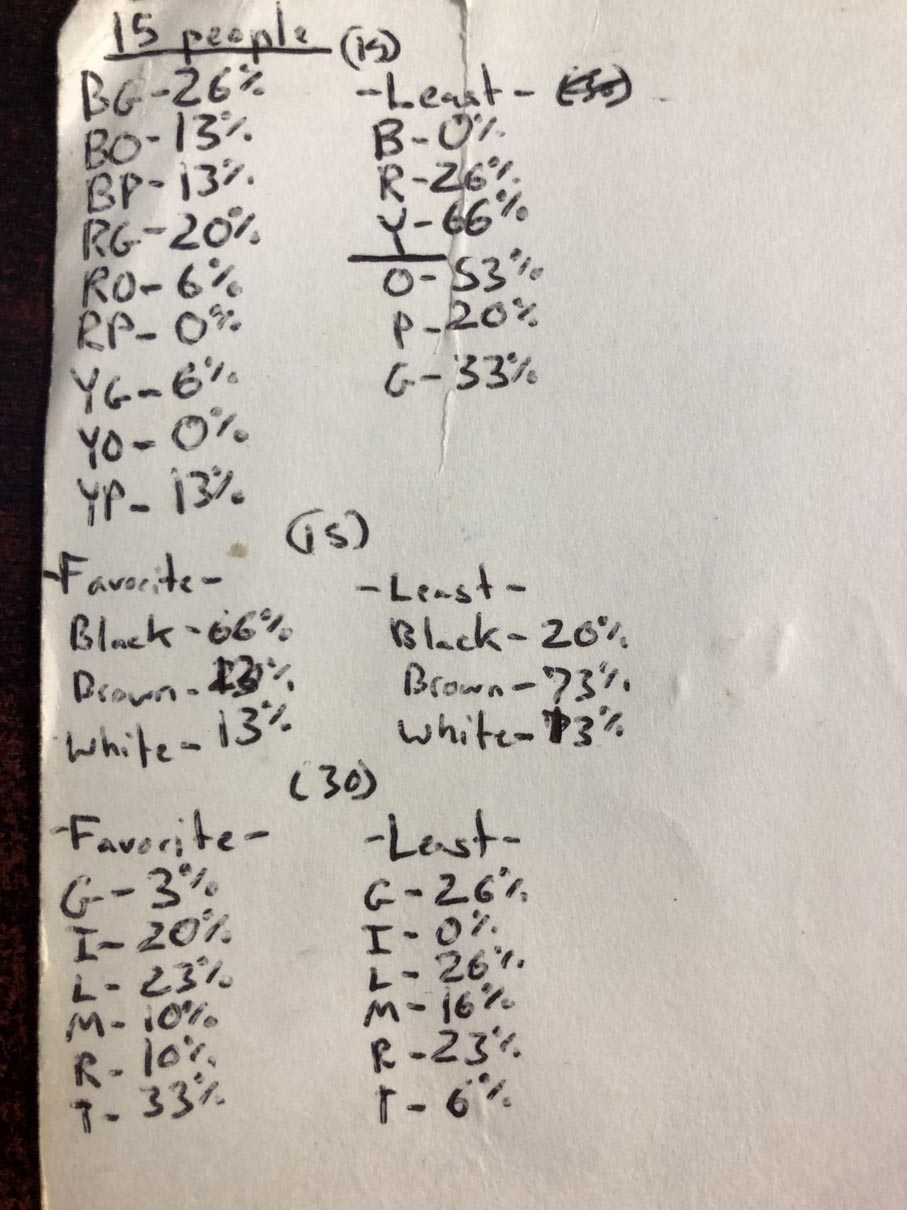 15 people
(15)
BG-26%
BO-13%
BP-13%
RG-20%
RO-6%
RP-0%
YG-6%
YO-0%
YP-13%
-Least-
B-0%
R-26%
Y-66%
O-53%
P-20%
G-33%
(15)
-Favorite-
Black-66%
Brown-
White-13%
-Least-
Black-20%
Brown-73%
White-
(30)
-Favorite-
G-3%
I-20%
L-23%
M-10%
R-10%
T-33%
-Least-
G-26%
I-0%
L-26%
M-16%
R-23%
T-6%